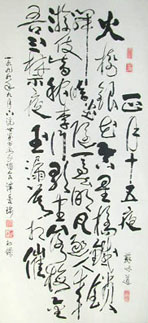 正月十五夜
蘇味道
火樹銀花合星橋鐵鎖
開暗塵隨馬去明月逐人來
遊伎皆穠李行歌盡落梅金
吾不禁夜玉漏莫相催